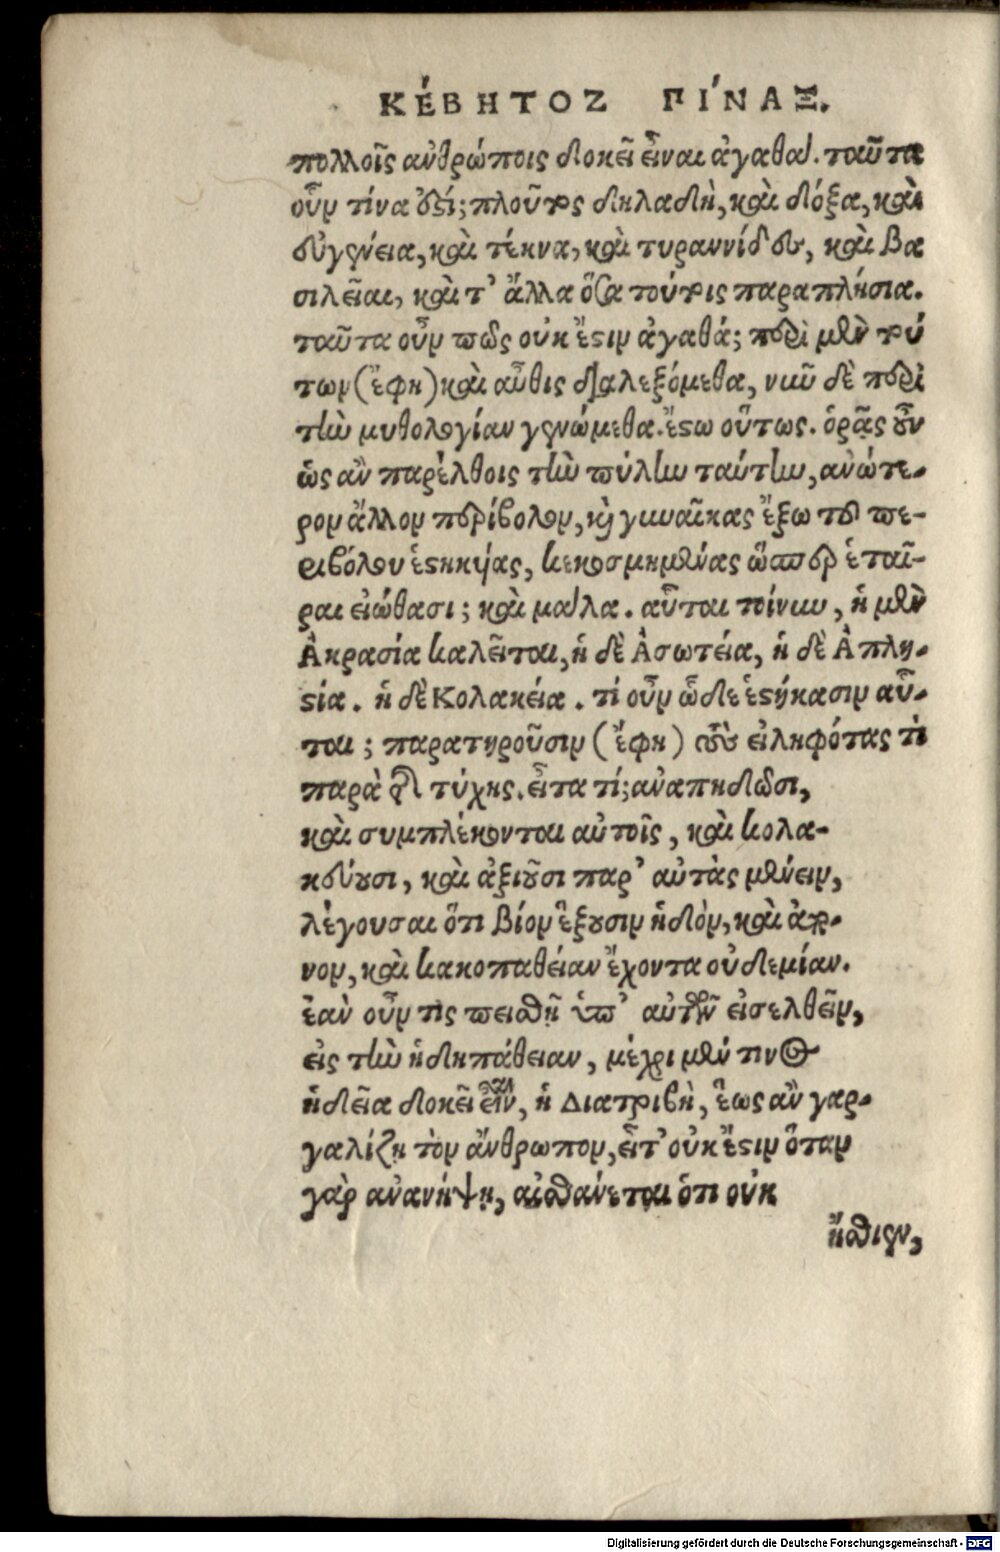 ΚΈΒΗΤΟΣ ΠΊΝΑΞ.
πολλοῖς ἀνθρώποις δοκεῖ εἶναι ἀγαθά. ταῦτα
οὖν τίνα ἐστί; πλοῦτος δηλαδὴ, καὶ δόξα, καὶ
εὐγένεια, καὶ τέκνα, καὶ τυραννίδες, καὶ βα
σιλεῖαι, καὶ τ’ ἄλλα ὅσα τούτοις παραπλήσια.
ταῦτα οὖν πῶς οὐκ ἔστιν ἀγαθά; περὶ μὲν τού
των (ἔφη) καὶ αὖθις διαλεξόμεθα, νῦν δὲ περὶ
τὴν μυθολογίαν γενώμεθα. ἔστω οὕτως. ὁρᾷς οὖν
ὡς ἂν παρέλθοις τὴν πύλην ταύτην, ἀνώτε-
ρον ἄλλον περίβολον, καὶ γυναῖκας ἔξω τοῦ πε-
ριβόλου ἑστηκυίας, κεκοσμημένας ὥσπερ ἑταῖ-
ραι εἰώθασι; καὶ μάλα. αὗται τοίνυν, ἡ μὲν
Ἀκρασία καλεῖται, ἡ δὲ Ἀσωτεία, ἡ δὲ Ἀπλη-
στία. ἡ δὲ Κολακεία. τί οὖν ὧδε ἑστήκασιν αὗ-
ται; παρατηροῦσιν (ἔφη) τοὺς εἰληφότας τὶ
παρὰ τῆς τύχης. εἶτα τί; ἀναπηδῶσι,
καὶ συμπλέκονται αὐτοῖς, καὶ κολα-
κεύουσι, καὶ ἀξιοῦσι παρ’ αὐτὰς μένειν,
λέγουσαι ὅτι βίον ἕξουσιν ἡδὺν, καὶ ἄπο-
νον, καὶ κακοπάθειαν ἔχοντα οὐδεμίαν.
ἐὰν οὖν τις πεισθῇ ὑπ’ αὐτῶν εἰσελθεῖν,
εἰς τὴν ἡδυπάθειαν, μέχρι μέν τινος
ἡδεῖα δοκεῖ εἶναι, ἡ Διατριβὴ, ἕως ἂν γαρ-
γαλίζῃ τὸν ἄνθρωπον, εἶτ’ οὐκ ἔστιν ὅταν
γὰρ ἀνανήψῃ, αἰσθάνεται ὅτι οὐκ
ἤσθιεν,
Digitalisierung gefördert durch die Deutsche Forschungsgemeinschaft - DFG